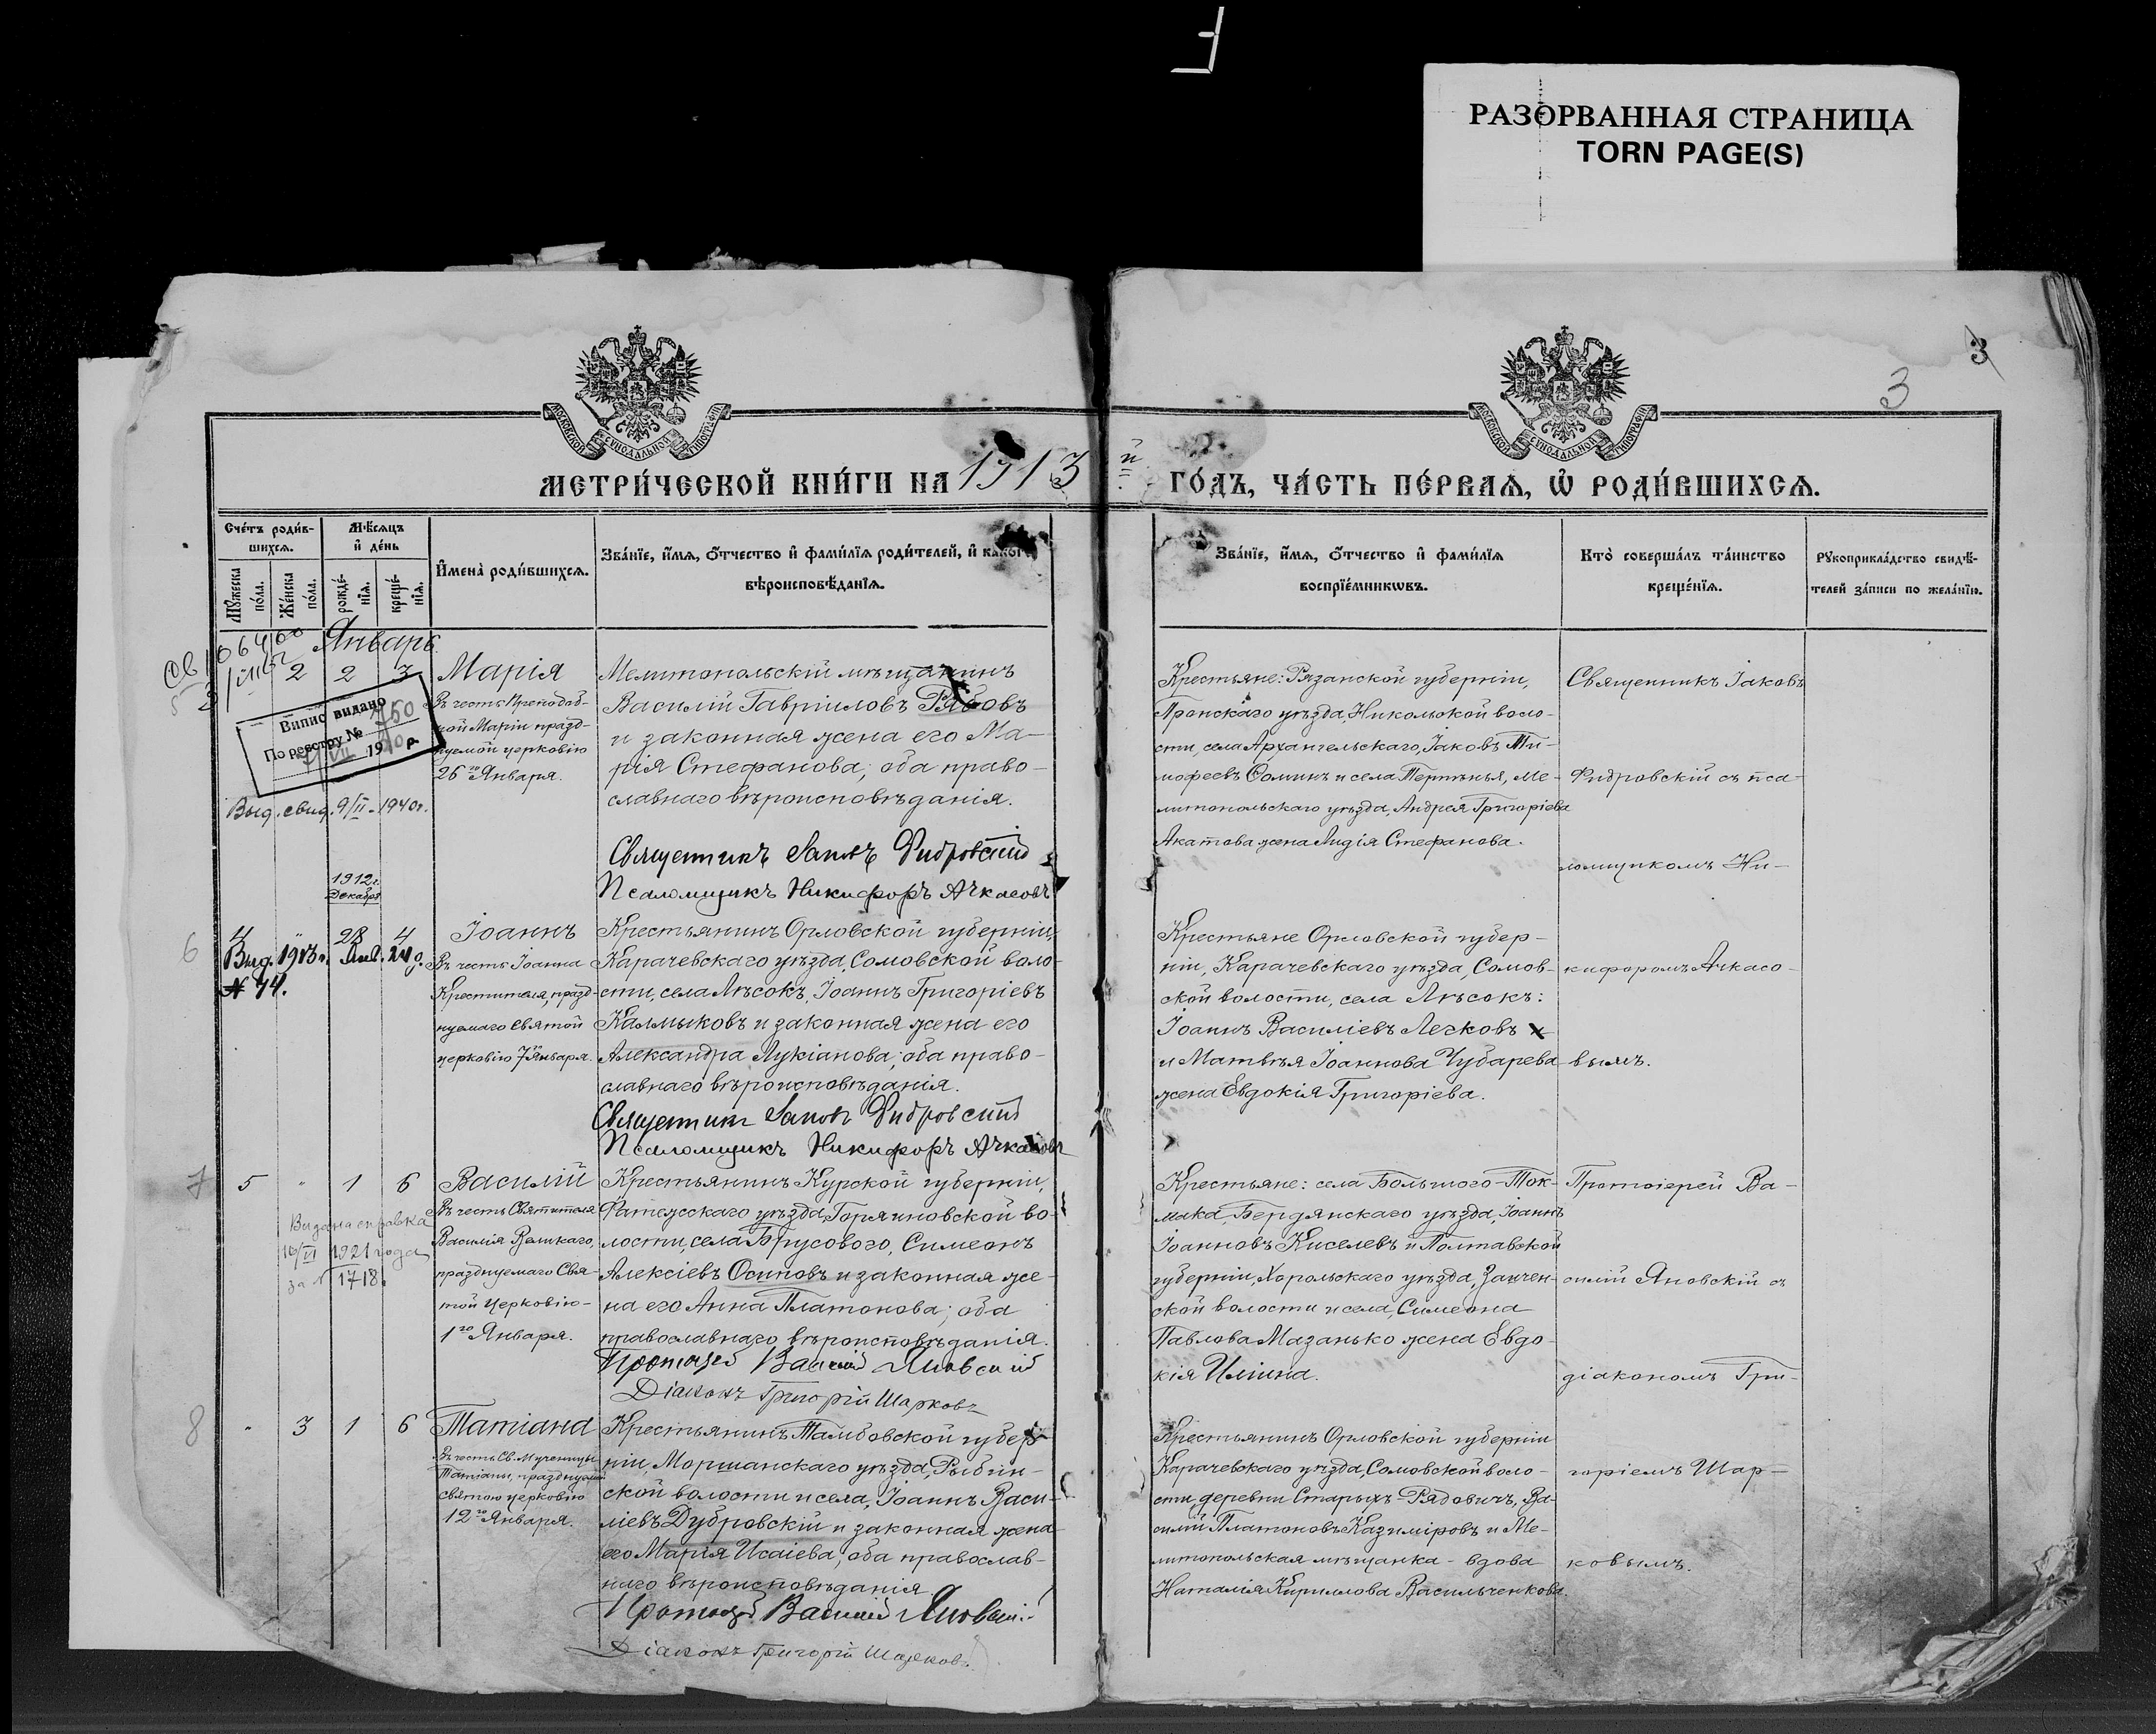 РАЗОРВАННАЯ СТРАНИЦА
TORN PAGE(S)
МОСКОВСКОЙ СѴНОДАЛЬНОЙ ТИПОГРАФІИ
МОСКОВСКОЙ СѴНОДАЛЬНОЙ ТИПОГРАФІИ
3
3
МЕТРИ́ЧЕСКОЙ КНИ́ГИ НА 1913 й ГО́ДЪ, ЧА́СТЬ ПЕ́РВАѦ, Ѡ҆ РОДИ́ВШИХСѦ.
Сче́тъ роди́в-
шихсѧ.
Мѣ́сѧцъ
и҆ де́нь
Мꙋ́жеска
по́ла.
Же́нска
по́ла.
рожде́-
нїѧ.
креще́-
нїѧ.
И҆мена̀ роди́вшихсѧ.
Зва́нїе, и҆́мѧ, ѻ҆́тчество и҆ фами́лїѧ роди́телей, и҆ како́гѡ
вѣроисповѣ́данїѧ.
Зва́нїе, и҆́мѧ, ѻ҆́тчество и҆ фами́лїѧ
воспрїе́мникѡвъ.
Кто̀ соверша́лъ та́инство
креще́нїѧ.
Рꙋкоприкла́дство свидѣ́-
телей за́писи по жела́нїю.
Январь.
2 2 3
Марія
Въ честь Преподоб-
ной Маріи празд-
нуемой церковію
26го Января.
Випис видано
По реєстру № 750
19 40 р.
Выд. свид. 9/II - 1940г.
Мелитопольскій мѣщанинъ
Василій Гавріиловъ Рябовъ
и законная жена его Ма-
рія Стефанова; оба право-
славнаго вѣроисповѣданія.
Священникъ Іаковъ Фидровскій
Псаломщикъ Никифоръ Ачкасовъ
Крестьяне: Рязанской губерніи,
Пронскаго уѣзда, Никольской воло-
сти, села Архангельскаго, Іаковъ Ти-
мофеевъ Соминъ и села Терпѣнья, Ме-
литопольскаго уѣзда, Андрея Григоріева
Акатова жена Лидія Стефанова.
Священникъ Іаковъ
Фидровскій съ пса-
ломщикомъ Ни-
кифоромъ Ачкасо-
вымъ.
1912г.
Декабря
6
4 " 28 4
Выд. 1913г. Янв. 24 д.
№ 44.
Іоаннъ
Въ честь Іоанна
Крестителя, празд-
нуемаго святой
церковію 7го Января.
Крестьянинъ Орловской губерніи,
Карачевскаго уѣзда, Сомовской воло-
сти, села Лѣсокъ, Іоаннъ Григоріевъ
Калмыковъ и законная жена его
Александра Лукіанова; оба право-
славнаго вѣроисповѣданія.
Священникъ Іаковъ Фидровскій
Псаломщикъ Никифоръ Ачкасовъ
Крестьяне Орловской губер-
ніи, Карачевскаго уѣзда, Сомов-
ской волости, села Лѣсокъ:
Іоаннъ Василіевъ Легковъ
и Матвѣя Іоаннова Чубарева
жена Евдокія Григоріева.
7
5 " 1 6
Видана справка
10/VI 1921 года
за № 1718.
Василій
Въ честь Святителя
Василія Великаго,
празднуемаго Свя-
той Церковію-
1го Января.
Крестьянинъ Курской губерніи,
Фатежскаго уѣзда, Горяиновской во-
лости, села Брусового, Симеонъ
Алексіевъ Осиповъ и законная же-
на его Анна Платонова; оба
православнаго вѣроисповѣданія.
Протоіерей Василій Яновскій
Діаконъ Григорій Шарковъ
Крестьяне: села Большого-Ток-
мака, Бердянскаго уѣзда, Іоаннъ
Іоанновъ Киселевъ и Полтавской
губерніи, Хорольскаго уѣзда,
ской волости и села, Симеона
Павлова Мазанько жена Евдо-
кія Илiина.
Протоіерей Ва-
силій Яновскій съ
діакономъ Гри-
горіемъ Шар-
ковымъ.
8
" 3 1 6
Татіана
Въ честь Св. Мученицы
Татіаны, празднуемой
святою церковію
12го Января.
Крестьянинъ Тамбовской губер-
ніи, Моршанскаго уѣзда, Рыбин-
ской волости и села, Іоаннъ Васи-
ліевъ Дубровскій и законная жена
его Марія Исаіева; оба православ-
наго вѣроисповѣданія.
Протоіерей Василій Яновскій
Діаконъ Григорій Шарковъ
Крестьянинъ Орловской губерніи
Карачевскаго уѣзда, Сомовской воло-
сти, деревни Старыхъ-Рядовичъ, Ва-
силій Платоновъ Казиміровъ и Ме-
литопольская мѣщанка - вдова
Наталія Кириллова Васильченкова.